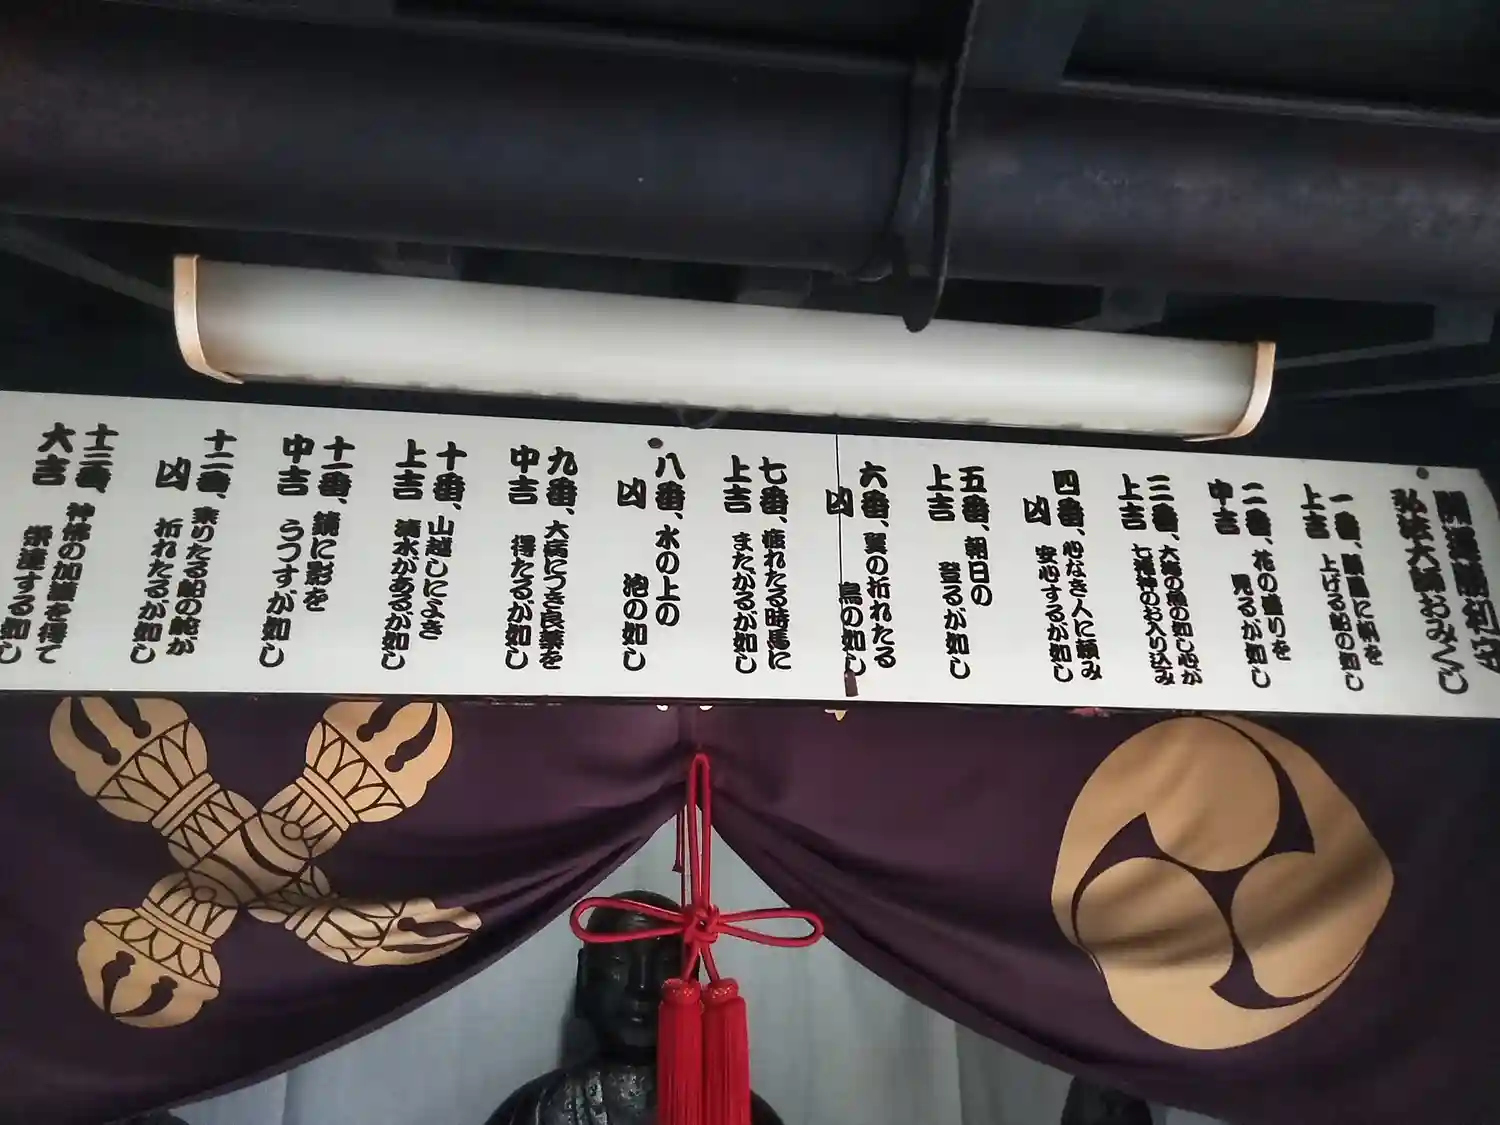 開運勝利
弘法大師おみくじ
一番、順風に帆を
上吉 上げる船の如し
二番、花の盛りを
中吉 見るが如し
三番、大海の船の如し心が
上吉 七福神のお入り込み
四番、心なき人に頼み
凶 安心するが如し
五番、朝日の
上吉 登るが如し
六番、翼の折れたる
凶 鳥の如し
七番、疲れたる時馬に
上吉 またがるが如し
八番、水の上の
凶 泡の如し
九番、大病につき良薬を
中吉 得たるが如し
十番、山越しによき
上吉 清水があるが如し
十一番、鏡に影を
中吉 うつすが如し
十二番、乗りたる船の舵が
凶 折れたるが如し
十三番、神佛の加護を得て
大吉 栄達する如し